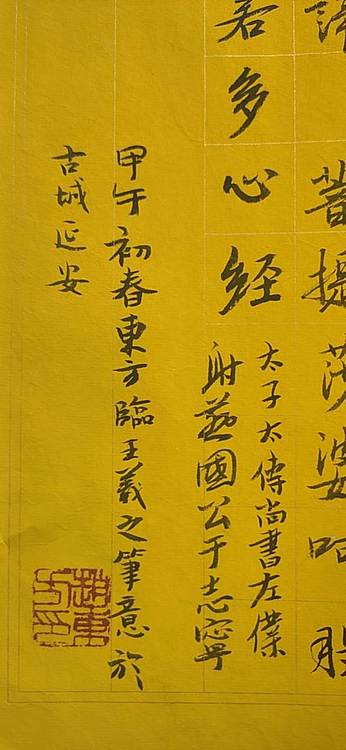 諦菩提莎婆呵般
若多心经
太子太傅尚書左僕
射燕國公于志寧
甲午初春東方臨王羲之筆意於
古城延安
趙東方印